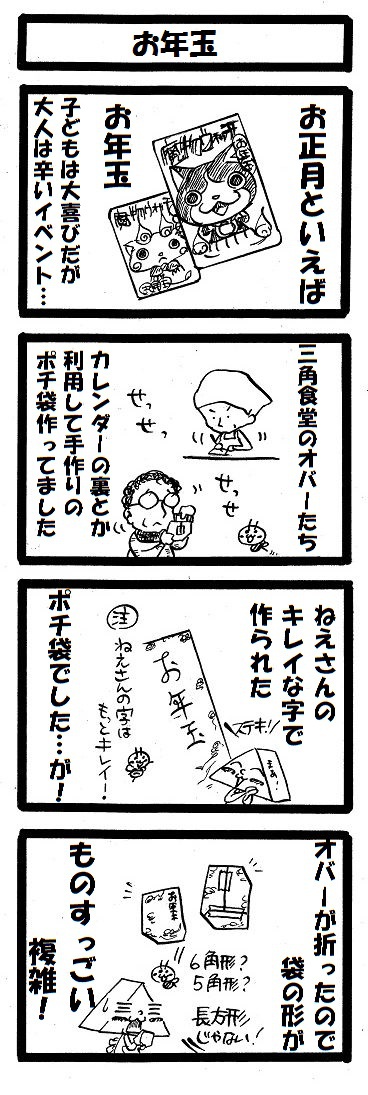 お年玉
お正月といえば
お年玉
子どもは大喜びだが
大人は辛いイベント…
三角食堂のオバーたち
せっ
せっ
せっ
せ
カレンダーの裏とか
利用して手作りの
ポチ袋作ってました
ねえさんの
キレイな字で
作られた
ステキ!!
まぁ!
お年玉
注
ねえさんの字は
もっとキレイ!
ポチ袋でした…が!
オバーが折ったので
袋の形が
お年玉
6角形?
5角形?
長方形
じゃない!
ものすっごい
複雑!